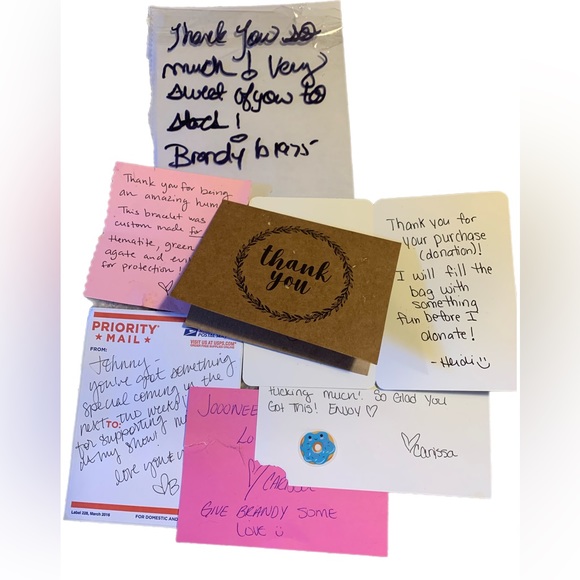 Thank you so
much! Very
sweet of you to
stock!
Brandy b 1975
Thank you for being
an amazing hum
This bracelet was
custom made for
Hematite, green
agate and
for protection!
thank
you
Thank you for
your purchase
(donation)!
I will fill the
bag with
something
fun before I
donate!
- Heidi
PRIORITY
MAIL
VISIT US AT USPS.COM
FROM:
Johnny -
you've got something
special coming in the
next two weeks
TO:
for supporting me
in my show!
love you
B
Label 228, March 2016
FOR DOMESTIC AND
JOOONEE
LO
GIVE BRANDY SOME
LOVE
fucking much! So Glad you
Got THIS! ENJOY
Carissa